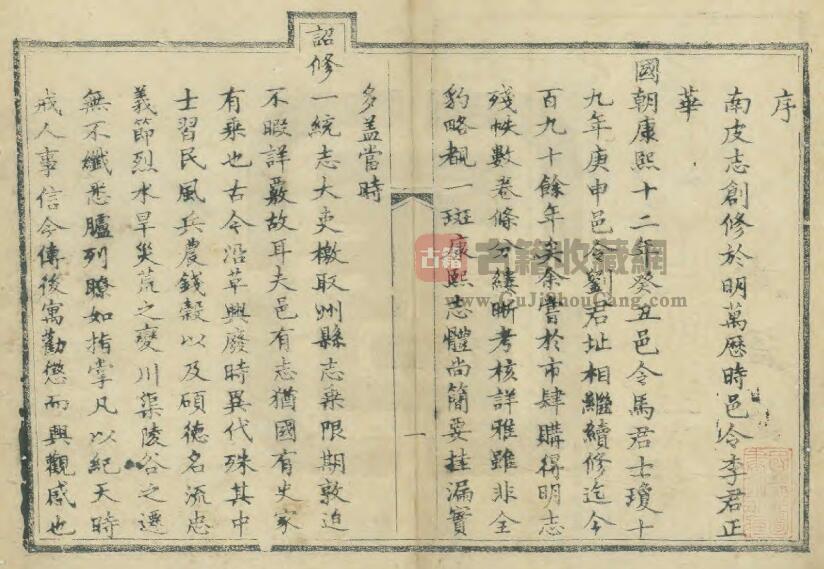 序
南皮志創修於明萬歷時邑令李君正
華
國朝康熙十二年癸丑邑令馬君士瓊十
九年庚申邑令劉君址相繼續修迄今
百九十餘年矣余嘗於市肆購得明志
殘帙數卷條分縷晰考核詳雅雖非全
豹略覩一斑康熙志體尚簡要挂漏實
一
多盖當時
詔修一統志大吏檄取州縣志乘限期敦迫
不暇詳覈故耳夫邑有志猶國有史家
有乘也古今沿革興廢時異代殊其中
士習民風兵農錢穀以及碩德名流忠
義節烈水旱災荒之變川渠陵谷之遷
無不纖悉臚列瞭如指掌凡以紀天時
戒人事信今傳後寓勸懲而興觀感也
古籍 古籍收藏網
www.GuJiShouCang.com